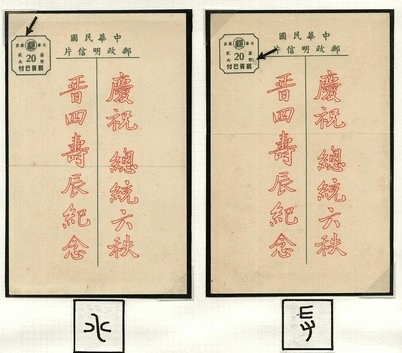 中華民國
郵政明信片
20
郵資已付
慶祝 總統六秩
晉四壽辰紀念
中華民國
郵政明信片
20
郵資已付
慶祝 總統六秩
晉四壽辰紀念